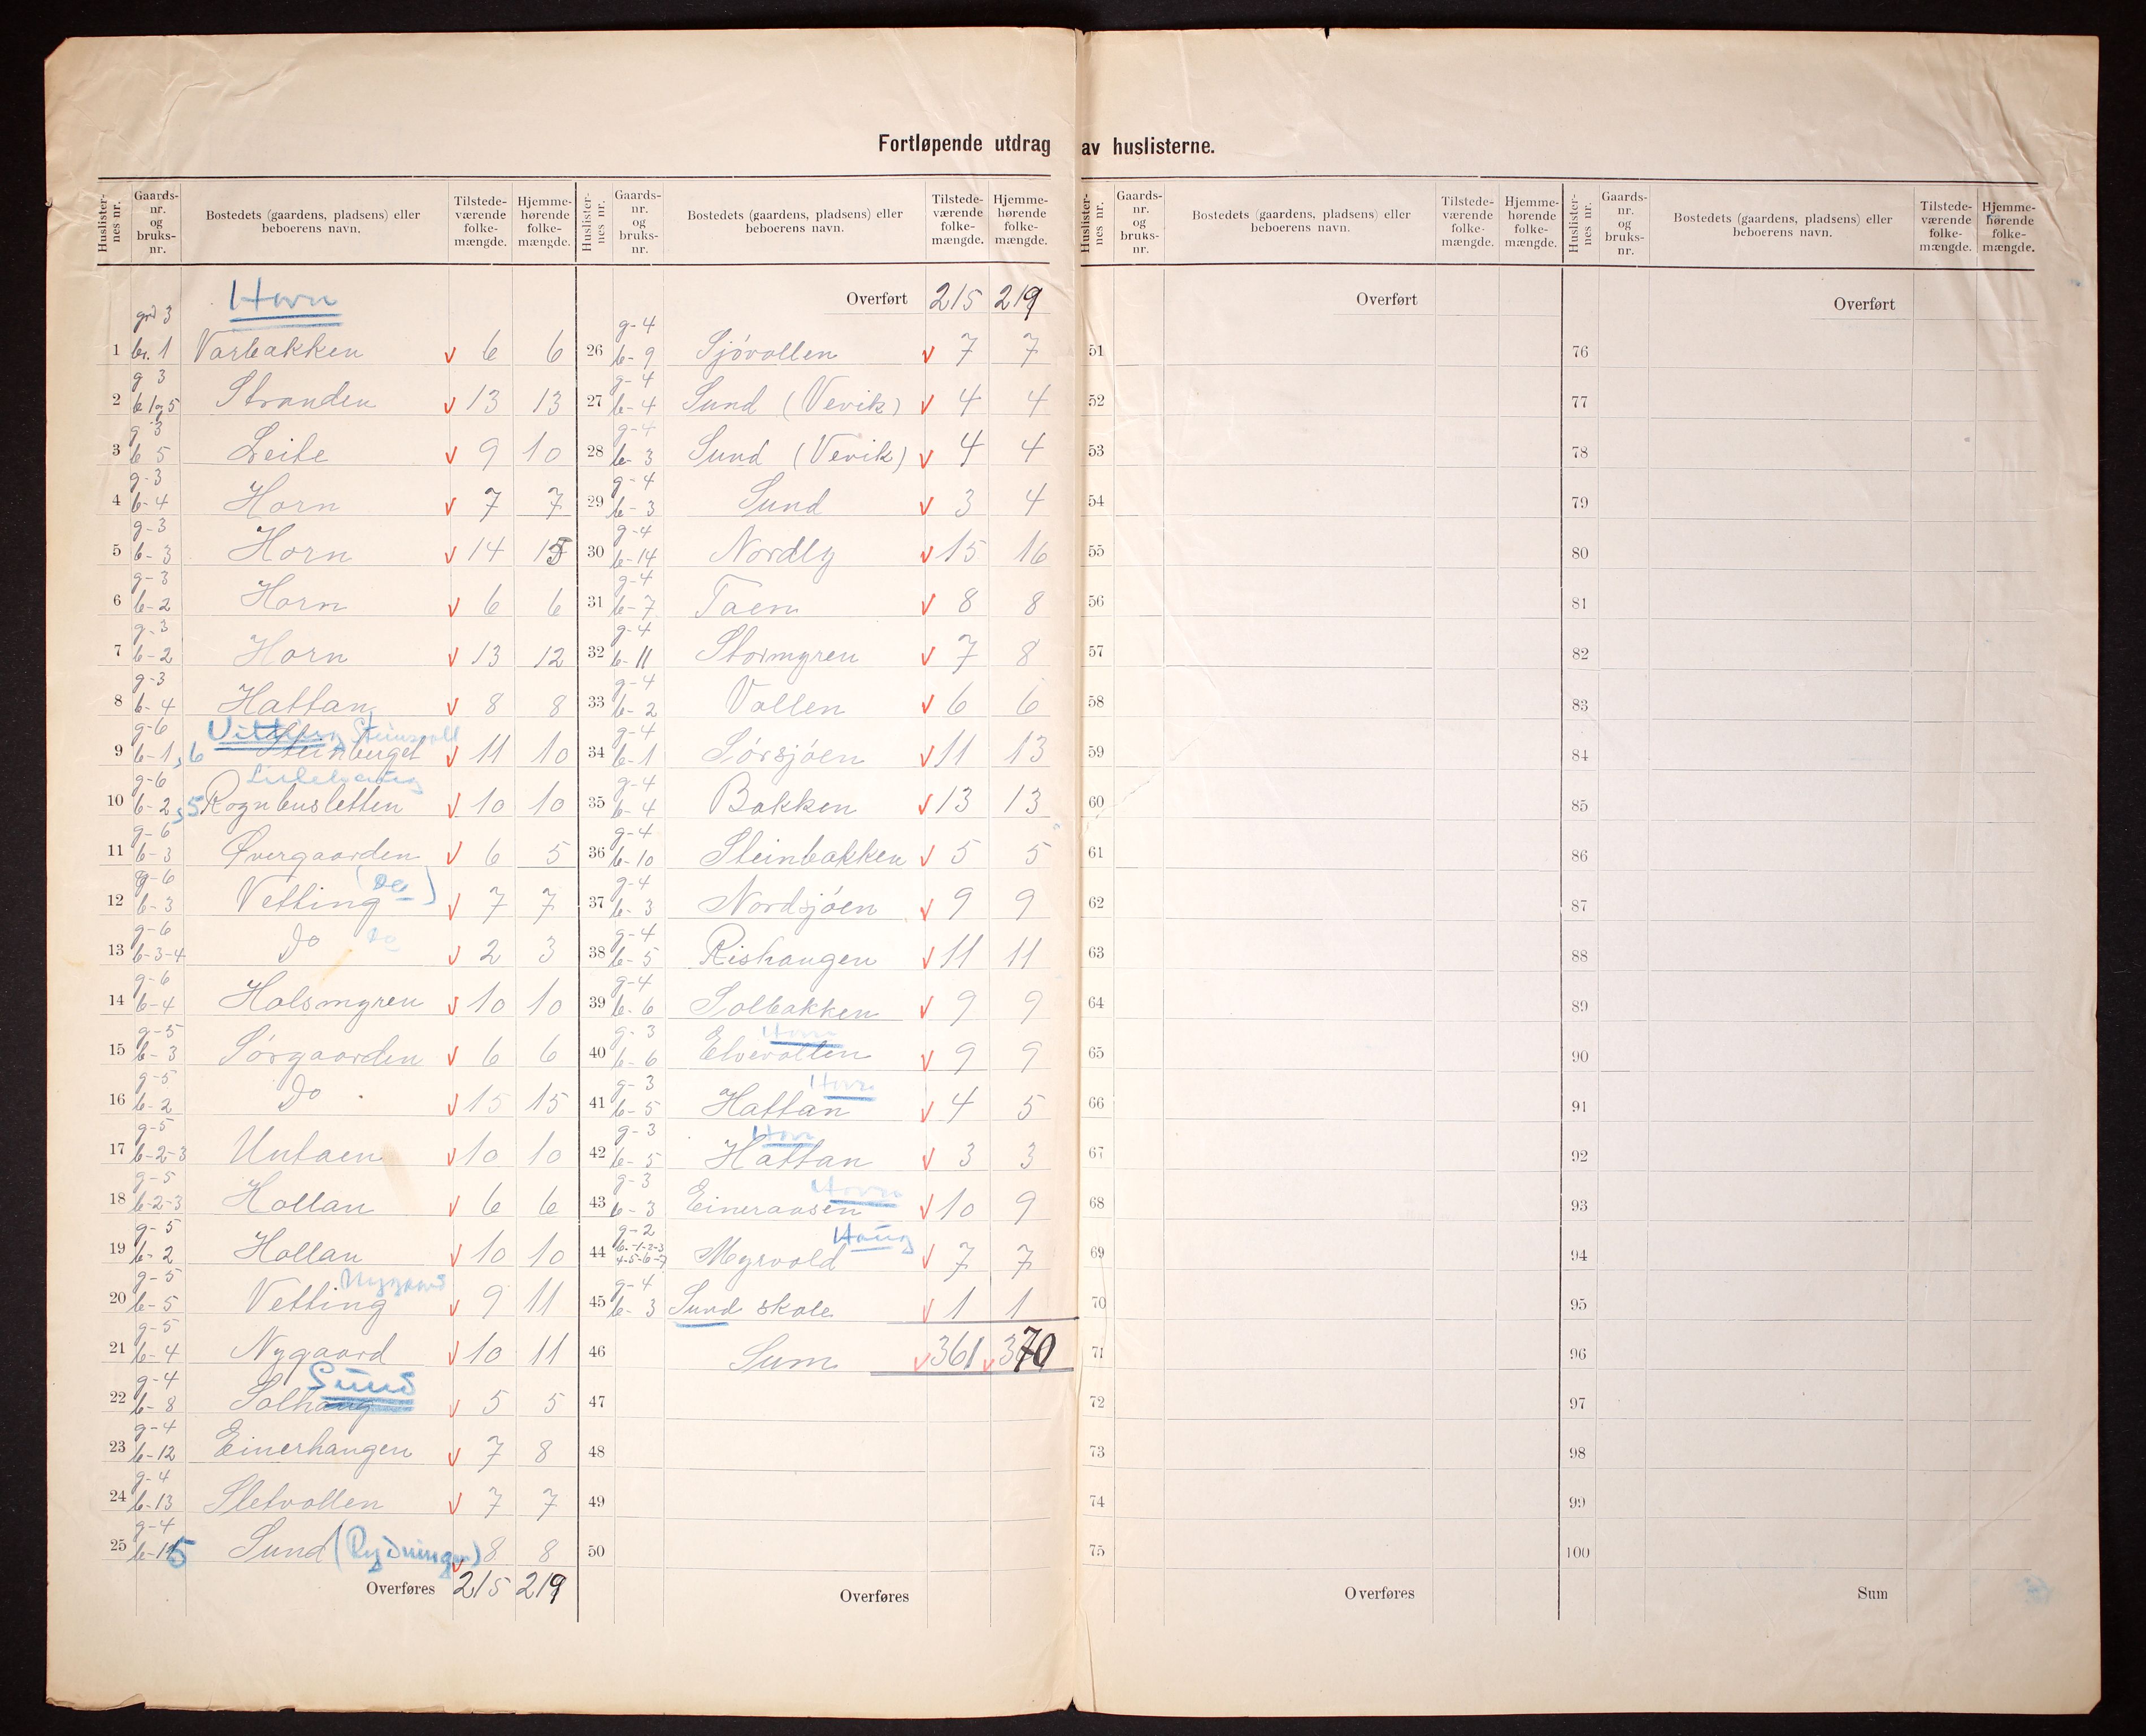 Fortløpende utdrag av huslisterne.
Huslister-nes nr. Gaards-nr. og bruks-nr. Bostedets (gaardens, pladsens) eller beboerens navn. Tilstede-værende folke-mængde. Hjemme-hørende folke-mængde.
Horn
1 grd 3 br. 1 Varbakken v 6 6
2 g 3 b 1 og 5 Stranden v 13 13
3 g 3 b 5 Leite v 9 10
4 g-3 b-4 Horn v 7 7
5 g-3 b-3 Horn v 14 15
6 g-3 b-2 Horn v 6 6
7 g-3 b-2 Horn v 13 12
8 g-3 b-4 Hattan v 8 8
Vitting Steinsvoll
9 g-6 b-1,6 Steinberget v 11 10
Lillehaug
10 g-6 b-2,5 Rognbusletten v 10 10
11 g-6 b-3 Øvergaarden v 6 5
12 g-6 b-3 Vetting (do) v 7 7
13 g-6 b-3-4 Do do v 2 3
14 g-6 b-4 Halsmyren v 10 10
15 g-5 b-3 Sørgaarden v 6 6
16 g-5 b-2 Do v 15 15
17 g-5 b-2-3 Untaen v 10 10
18 g-5 b-2-3 Hollan v 6 6
19 g-5 b-2 Hollan v 10 10
Nygaard
20 g-5 b-5 Vetting v 9 11
21 g-5 b-4 Nygaard v 10 11
Sund
22 g-4 b-8 Solhaug v 5 5
23 g-4 b-12 Einerhaugen v 7 8
24 g-4 b-13 Sletvollen v 7 7
25 g-4 b-15 Sund (Rydningen) v 8 8
Overføres 215 219
Huslister-nes nr. Gaards-nr. og bruks-nr. Bostedets (gaardens, pladsens) eller beboerens navn. Tilstede-værende folke-mængde. Hjemme-hørende folke-mængde.
Overført 215 219
26 g-4 b-9 Sjøvollen v 7 7
27 g-4 b-4 Sund (Vevik) v 4 4
28 g-4 b-3 Sund (Vevik) v 4 4
29 g-4 b-3 Sund v 3 4
30 g-4 b-14 Nordly v 15 16
31 g-4 b-7 Taem v 8 8
32 g-4 b-11 Stormyren v 7 8
33 g-4 b-2 Vollen v 6 6
34 g-4 b-1 Sørsjøen v 11 13
35 g-4 b-4 Bakken v 13 13
36 g-4 b-10 Steinbakken v 5 5
37 g-4 b-3 Nordsjøen v 9 9
38 g-4 b-5 Rishaugen v 11 11
39 g-4 b-6 Solbakken v 9 9
Horn
40 g-3 b-6 Elvevollen v 9 9
Horn
41 g-3 b-5 Hattan v 4 5
Horn
42 g-3 b-5 Hattan v 3 3
Horn
43 g-3 b-3 Eineraasen v 10 9
Haug
44 g-2 b-1-2-3 4-5-6-7 Myrvold v 7 7
45 g-4 b-3 Sund skole v 1 1
46 Sum v 361 v 370
47
48
49
50
Overføres
Huslister-nes nr. Gaards-nr. og bruks-nr. Bostedets (gaardens, pladsens) eller beboerens navn. Tilstede-værende folke-mængde. Hjemme-hørende folke-mængde.
Overført
51
52
53
54
55
56
57
58
59
60
61
62
63
64
65
66
67
68
69
70
71
72
73
74
75
Overføres
Huslister-nes nr. Gaards-nr. og bruks-nr. Bostedets (gaardens, pladsens) eller beboerens navn. Tilstede-værende folke-mængde. Hjemme-hørende folke-mængde.
Overført
76
77
78
79
80
81
82
83
84
85
86
87
88
89
90
91
92
93
94
95
96
97
98
99
100
Sum